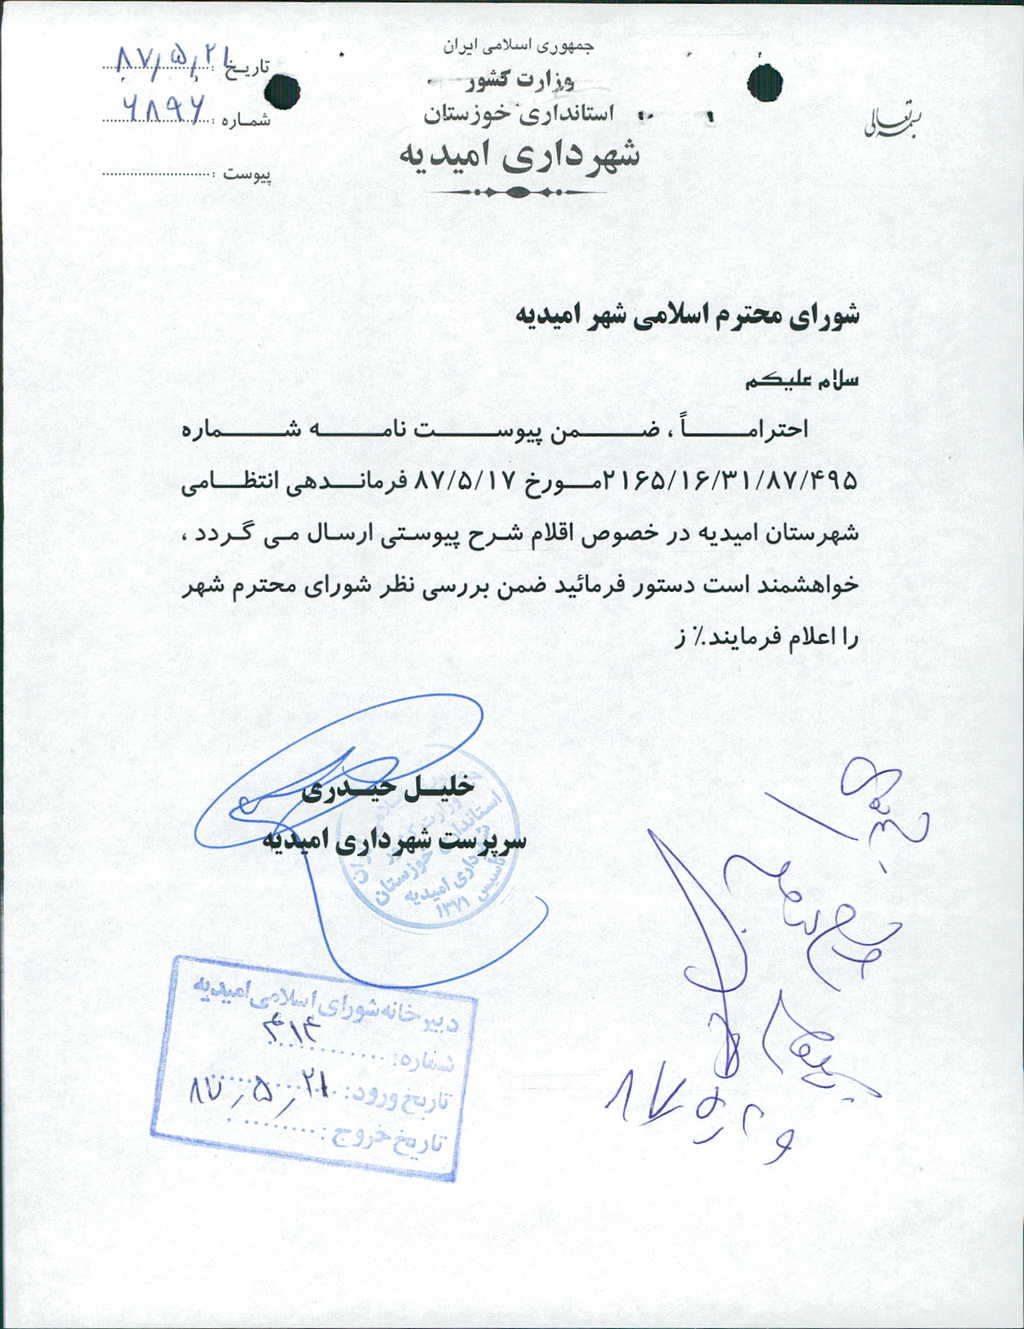 بسمه تعالی
جمهوری اسلامی ایران
وزارت کشور
استانداری خوزستان
شهرداری امیدیه
تاریخ : ۸۷/۵/۲۱
شماره : ۶۸۹۶
پیوست :
شورای محترم اسلامی شهر امیدیه
سلام علیکم
احتراماً ، ضمن پیوست نامه شماره
۲۱۶۵/۱۶/۳۱/۸۷/۴۹۵مورخ ۸۷/۵/۱۷ فرماندهی انتظامی
شهرستان امیدیه در خصوص اقلام شرح پیوستی ارسال می گردد ،
خواهشمند است دستور فرمائید ضمن بررسی نظر شورای محترم شهر
را اعلام فرمایند.٪ ز
خلیل حیدری
سرپرست شهرداری امیدیه
استانداری خوزستان
شهرداری امیدیه
تاسیس ۱۳۷۱
دبیرخانه شورای اسلامی امیدیه
شماره: ۴۱۴
تاریخ ورود: ۸۷/۵/۲۱
تاریخ خروج: